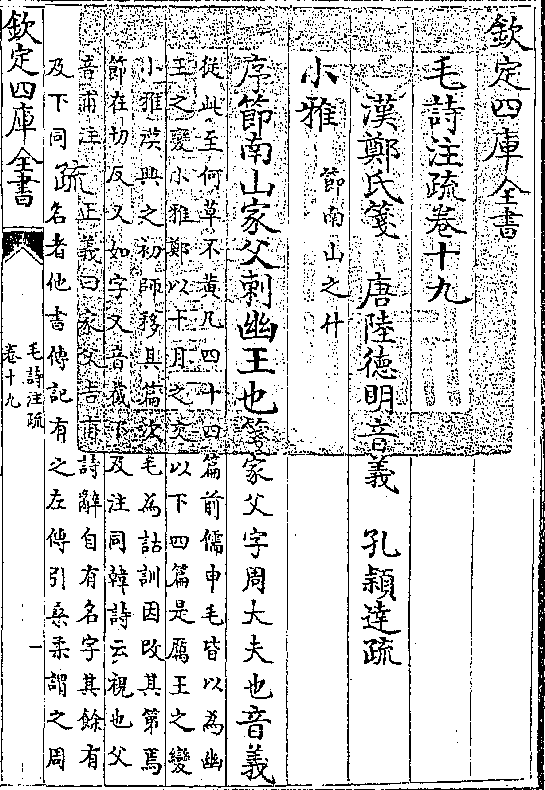 欽定四庫全書
毛詩注疏卷十九
漢鄭氏箋 唐陸德明音義 孔穎達疏
小雅 節南山之什
序節南山家父刺幽王也箋家父字周大夫也音義
從此至何草不黃凡四十四篇前儒申毛皆以為幽
王之變小雅鄭以十月之交以下四篇是厲王之變
小雅漢興之初師移其篇次毛為詁訓因改其第焉
節在切反又如字又音截下及注同韓詩云視也父
音甫注
及下同
疏
正義曰家父吉甫詩辭自有名字其餘有
名者他書傳記有之左傳引桑柔謂之周
欽定四庫全書
毛詩注疏
卷十九
一